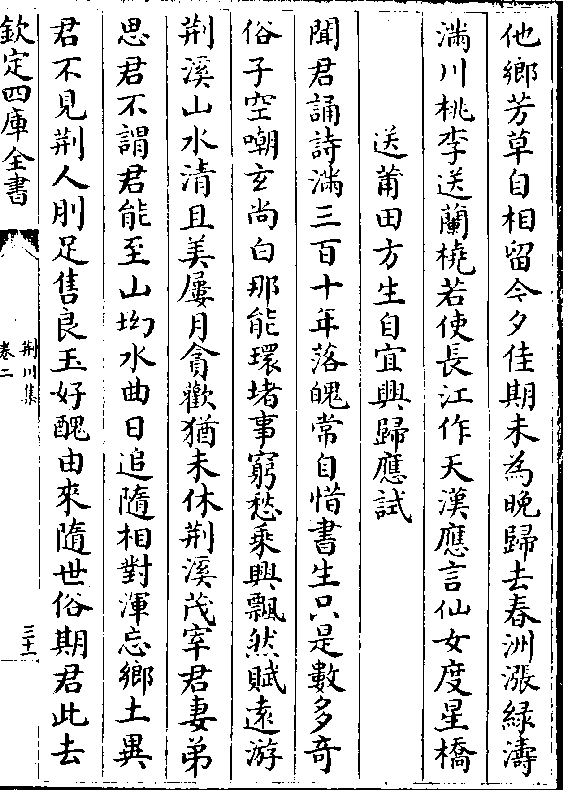 他鄉芳草自相留今夕佳期未為晚歸去春洲漲綠濤
滿川桃李送蘭橈若使長江作天漢應言仙女度星橋
送莆田方生自宜興歸應試
聞君誦詩滿三百十年落魄常自惜書生只是數多奇
俗子空嘲玄尚白那能環堵事窮愁乘興飄然賦遠游
荆溪山水清且美屢月貪歡猶未休荆溪茂宰君妻弟
思君不謂君能至山坳水曲日追隨相對渾忘鄉土異
君不見荆人刖足售良玉好醜由來隨世俗期君此去
欽定四庫全書
荆川集
卷二
三十一